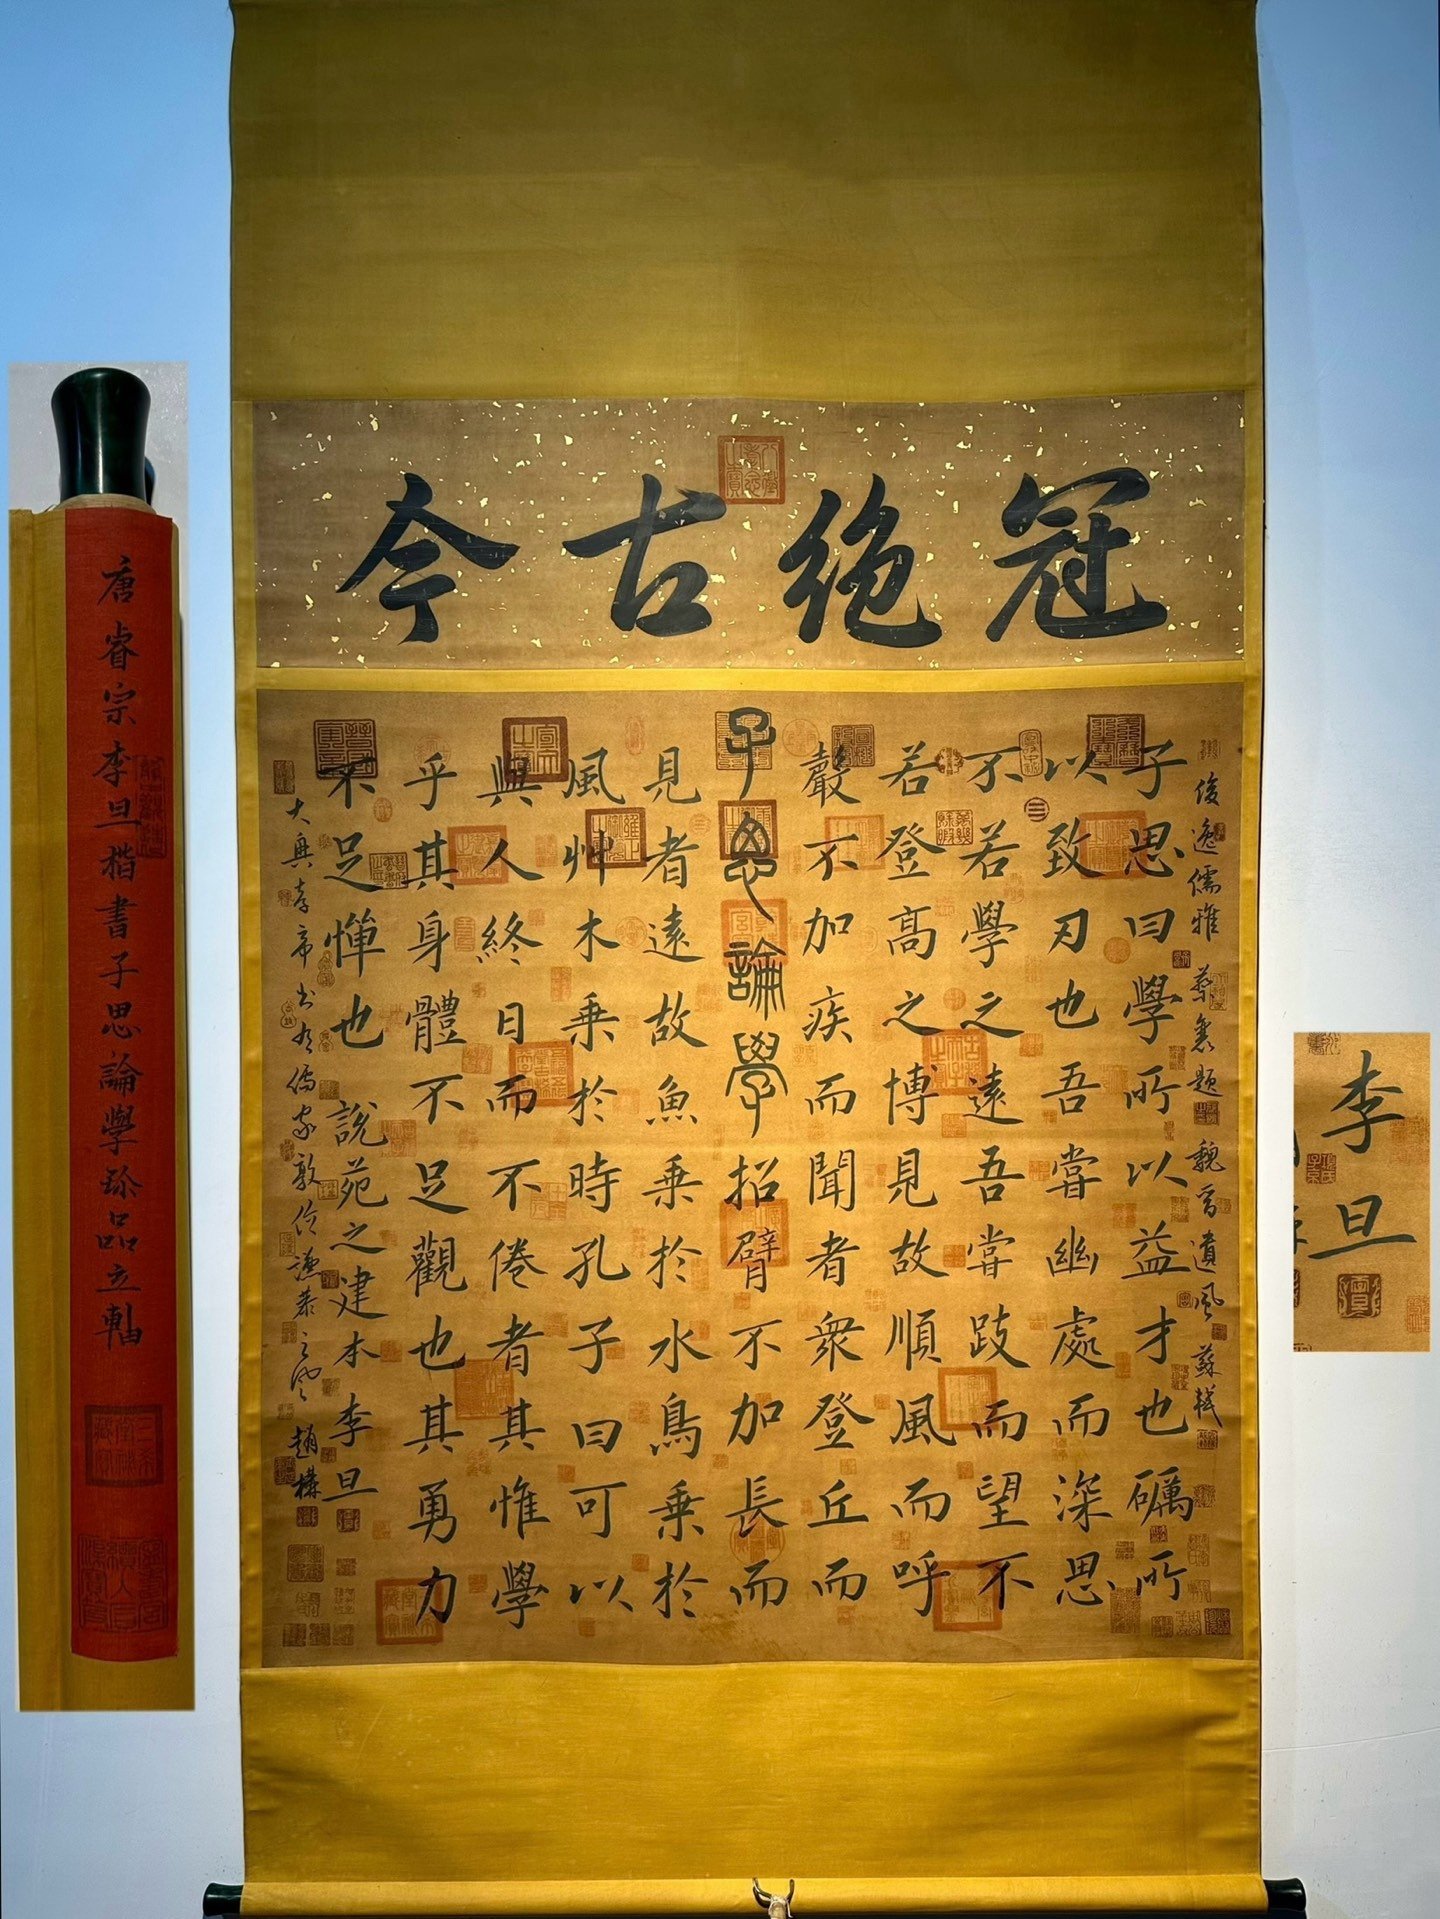 冠絶古今
俊逸儒雅 蔡襄題 魏晉遺風 蘇軾
子思曰學所以益才也礪所
以致刃也吾嘗幽處而深思
不若學之遠吾嘗跂而望不
若登高之博見故順風而呼
嚴不加疾而聞者衆登丘而
子思論學招臂不加長而
見者遠故魚乘於水鳥乘於
風艸木乘於時孔子曰可以
與人終日而不倦者其惟學
乎其身體不足觀也其勇力
不足憚也 說苑之建本 李旦
大興孝帝書尤儒家敦伦謙恭之風 趙構
唐睿宗李旦楷書子思論學珎品立軸
李旦